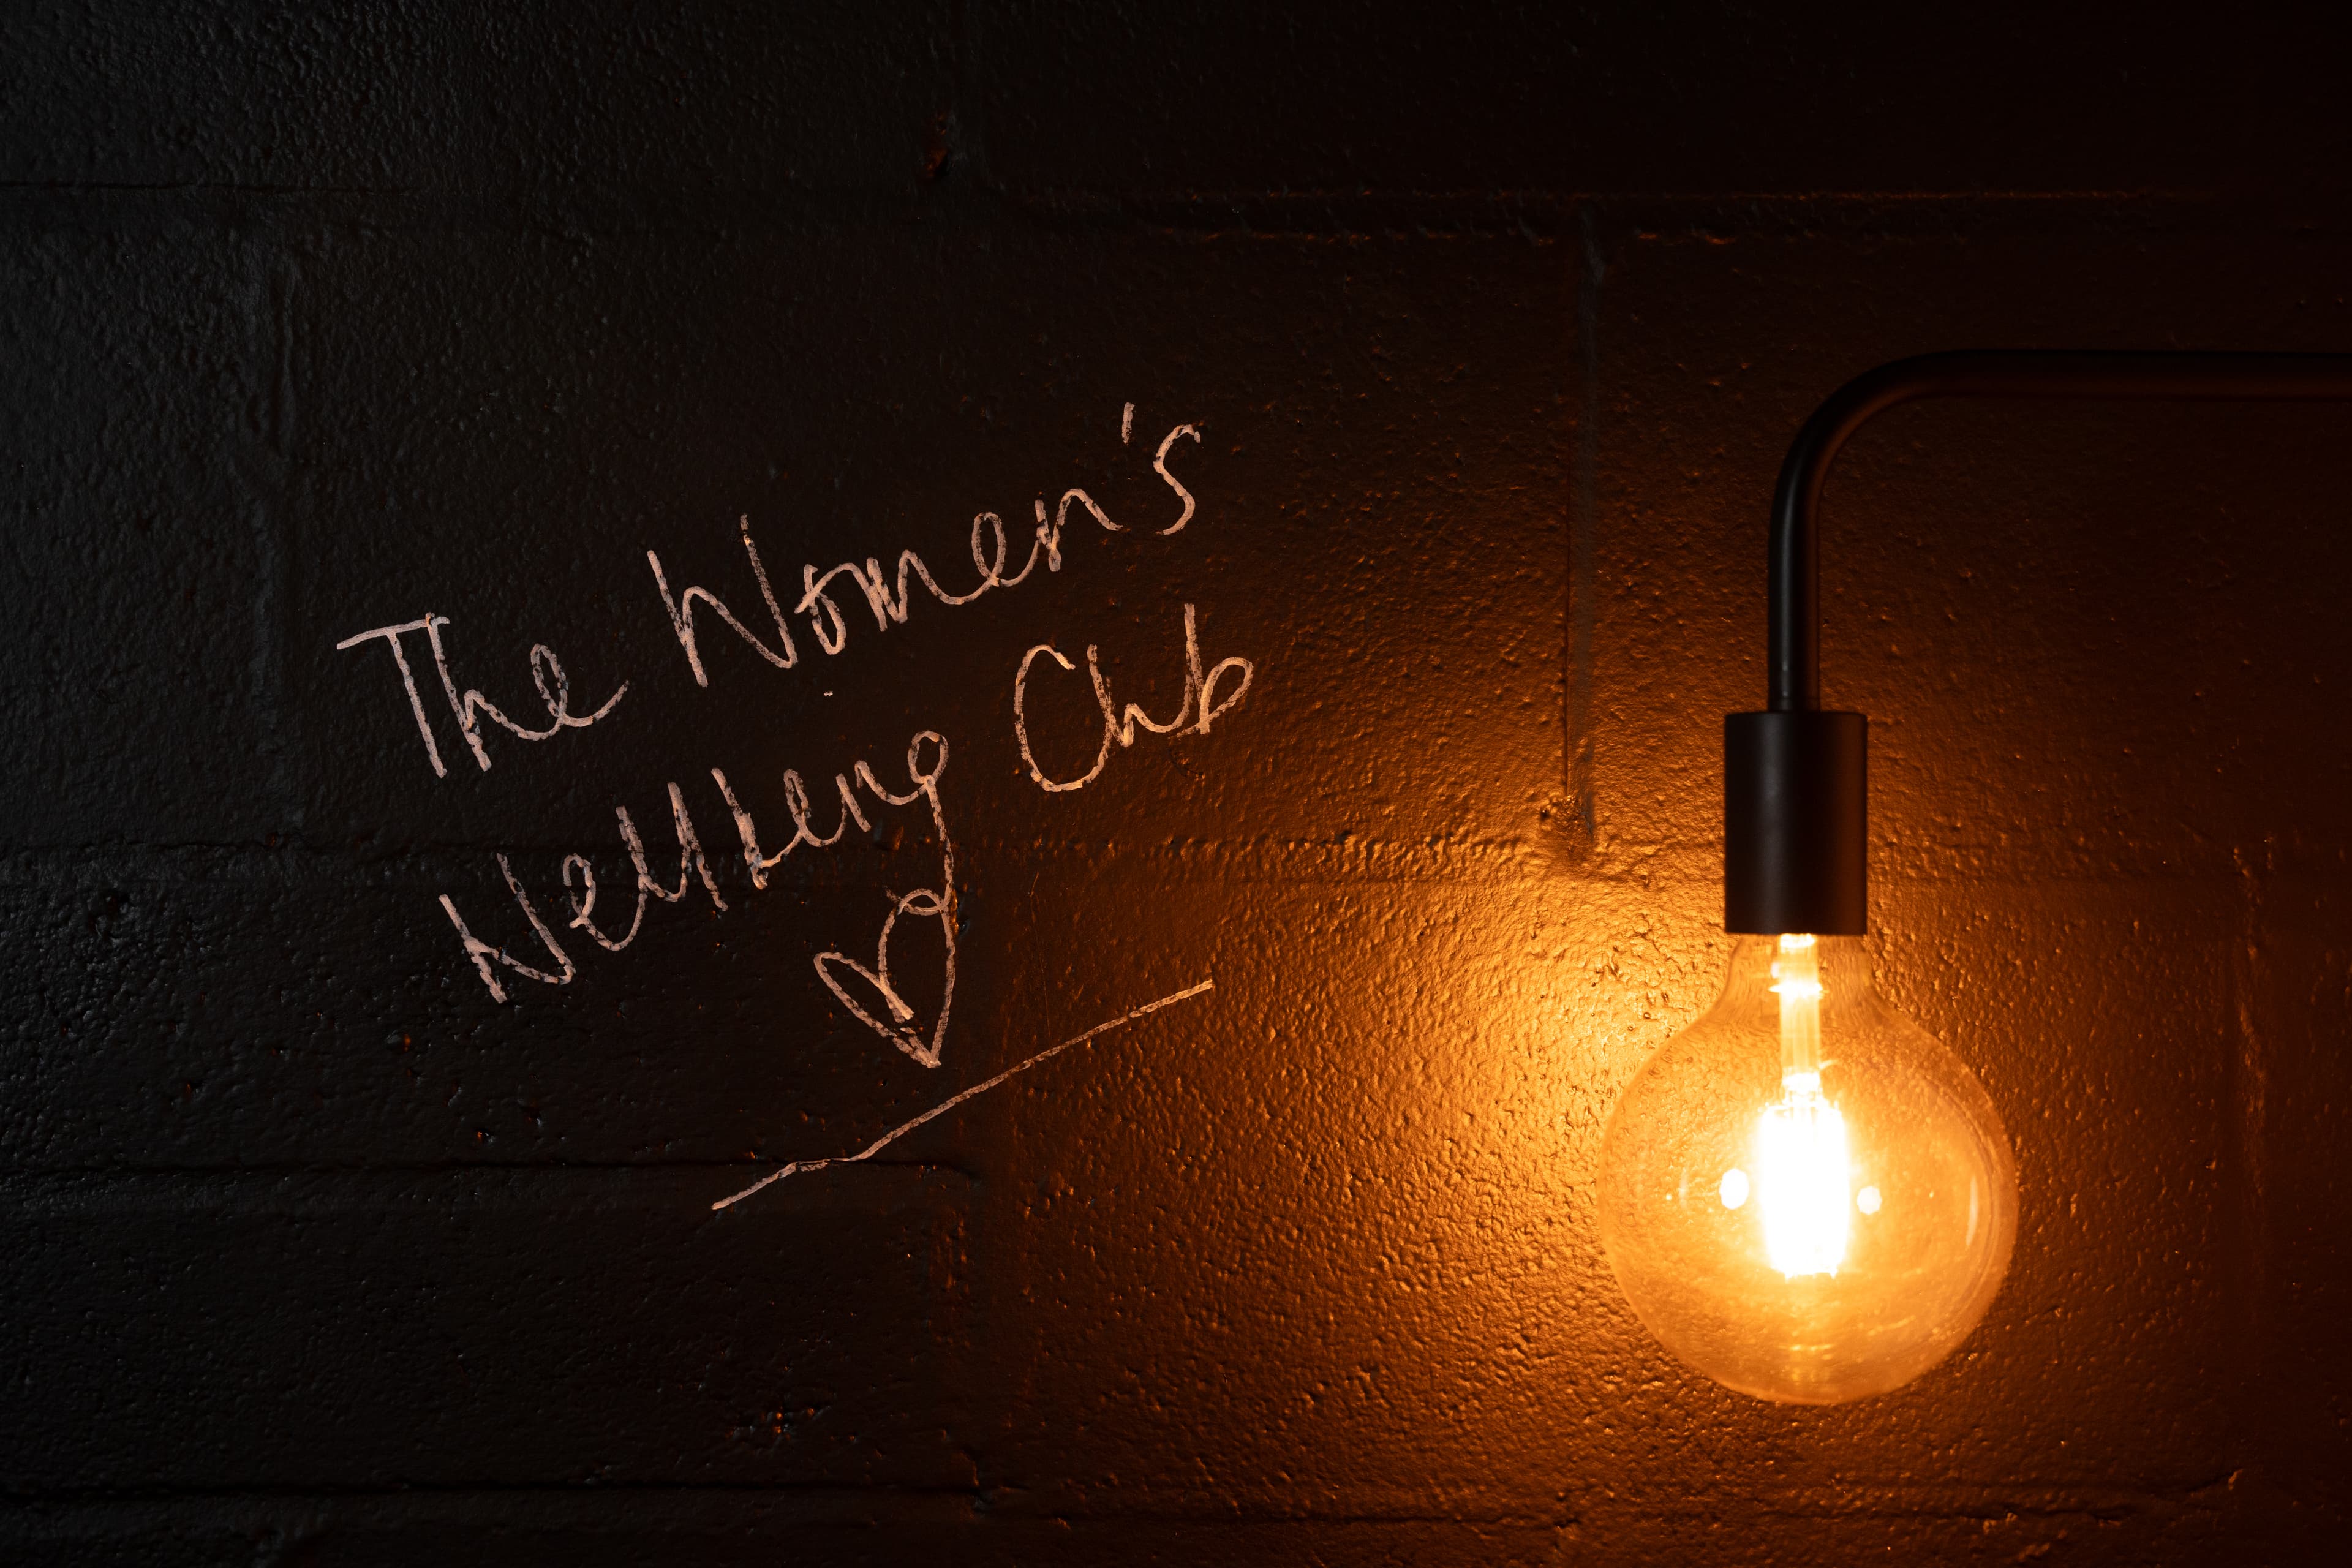 The Women's
Wellbeing Club